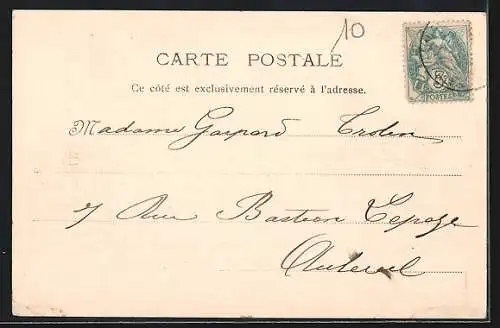 10
CARTE POSTALE
Ce côté est exclusivement réservé à l'adresse.
Madame Gaspard
7 Rue Bastien Lepage
Auteuil
POSTES